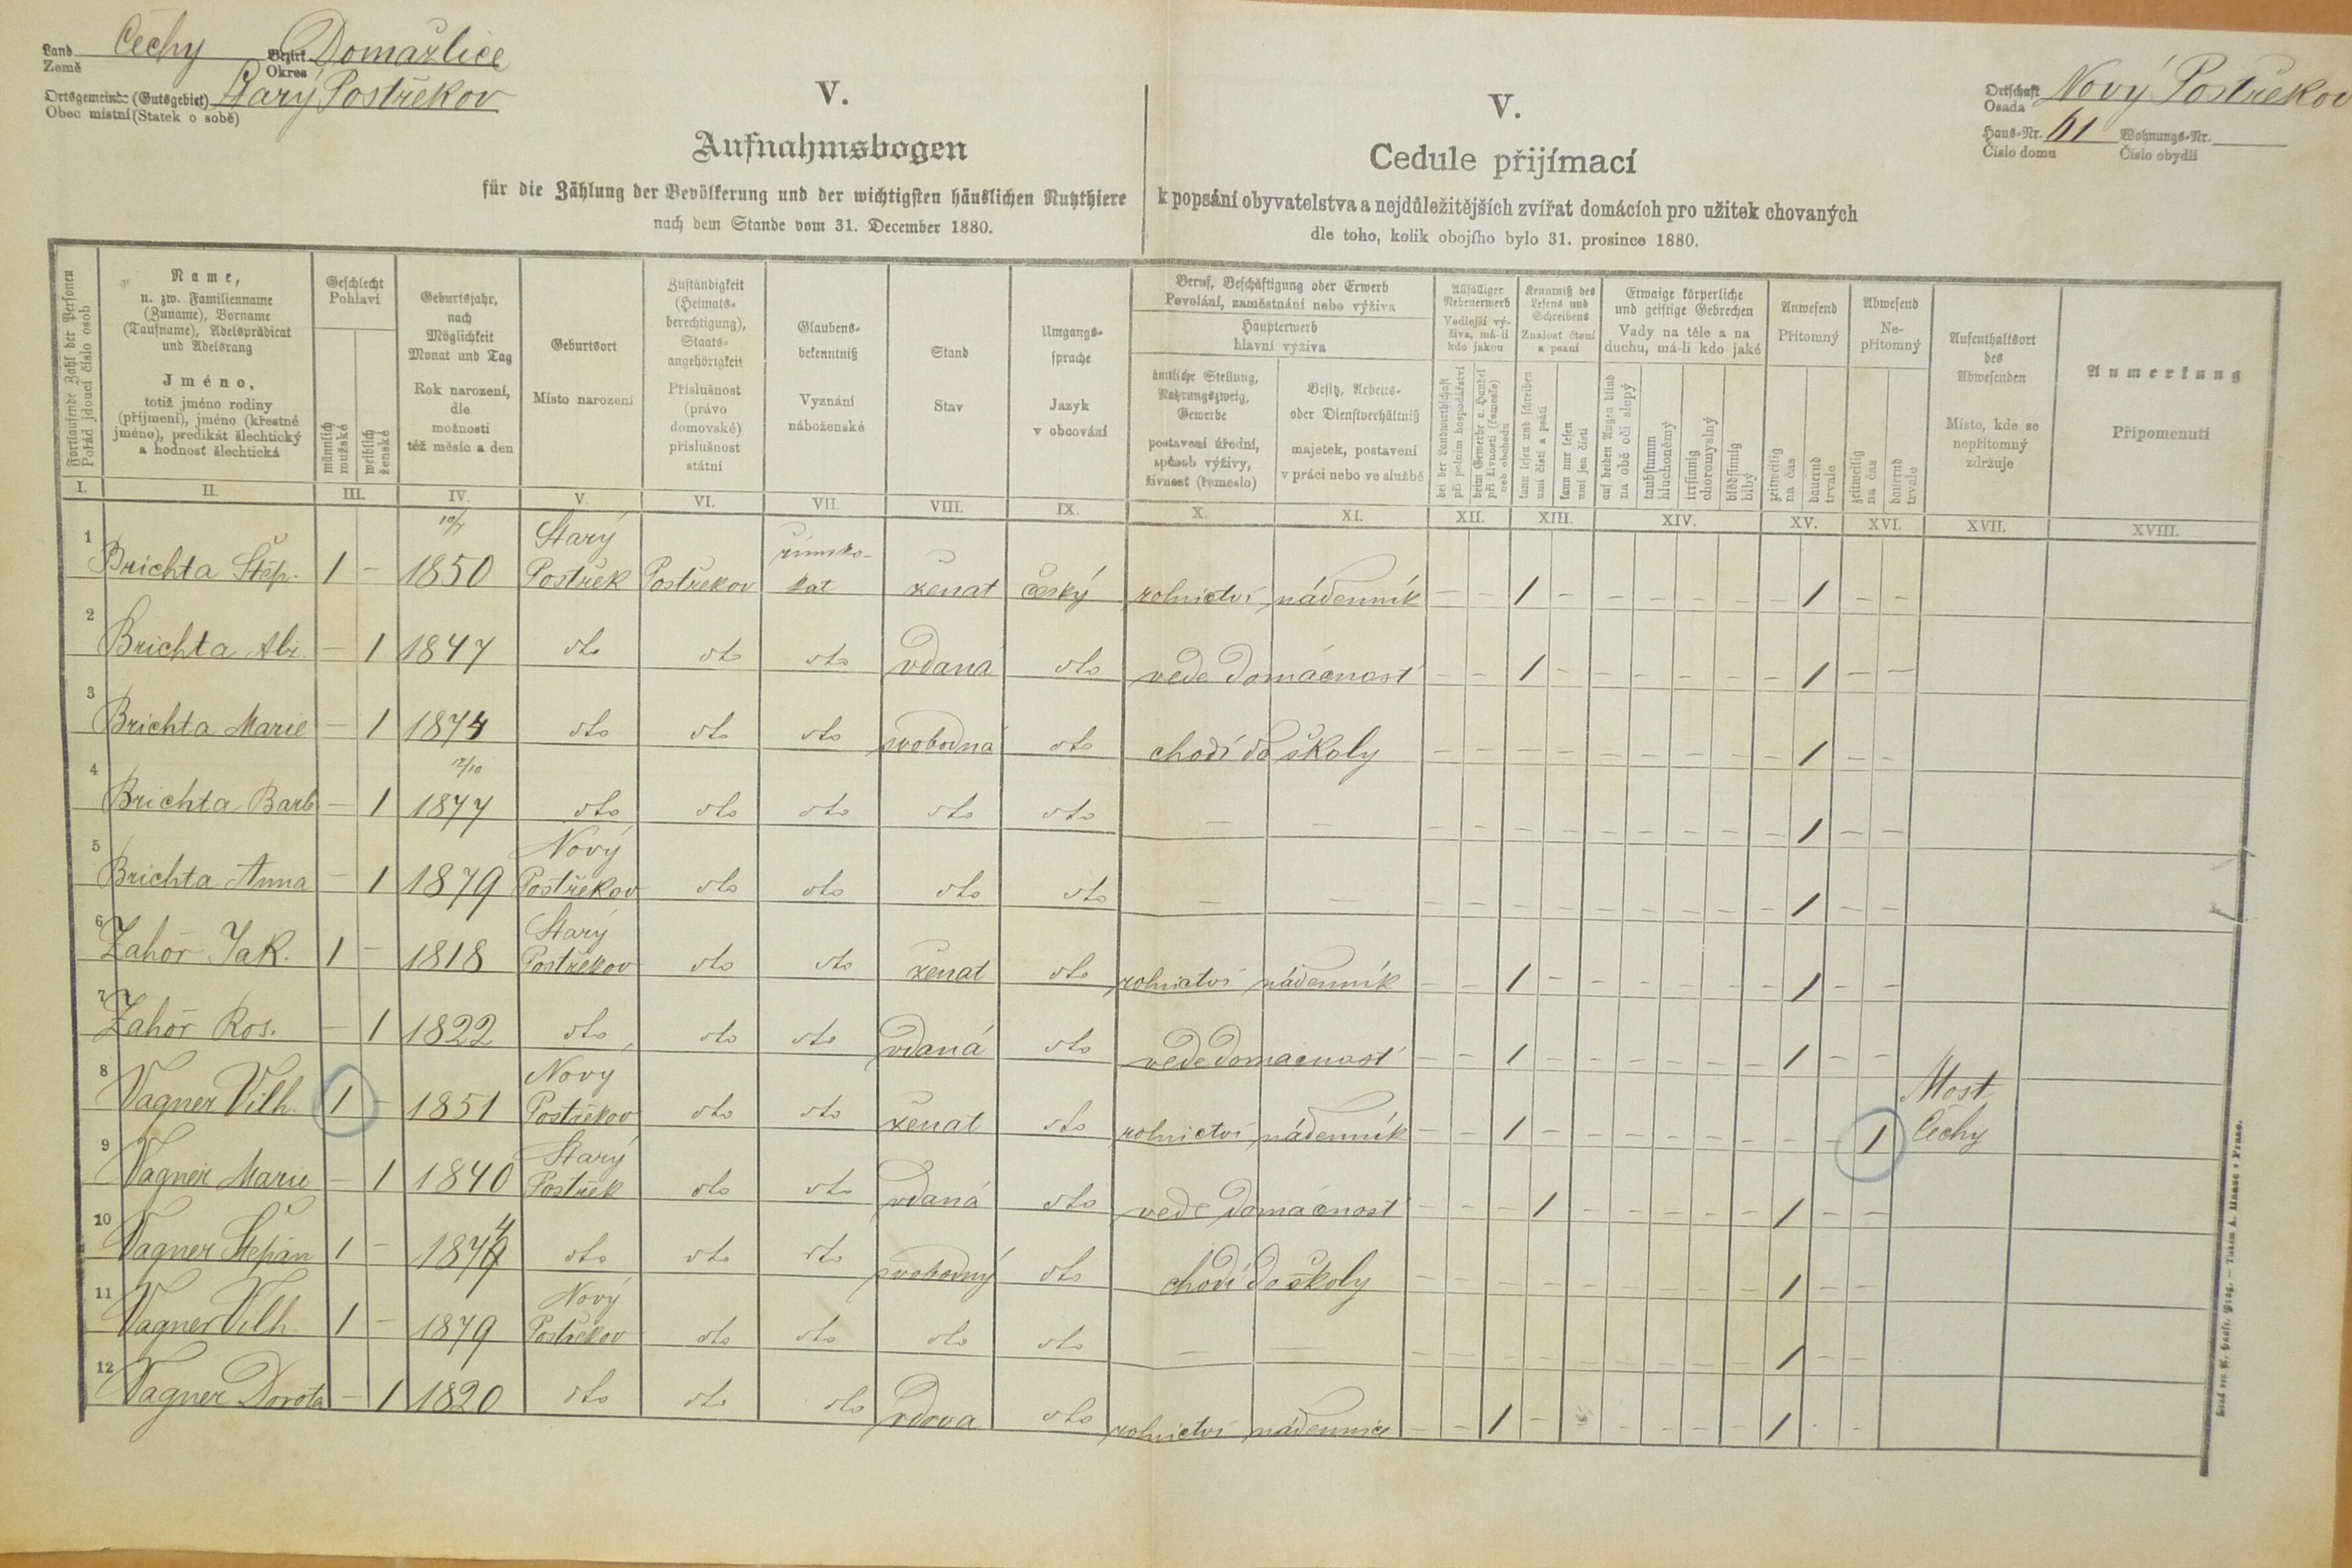 Land Země Čechy Bezirk Okres Domažlice
Ortsgemeinde (Gutsgebiet) Obec místní (Statek o sobě) Starý Postřekov
V.
Aufnahmsbogen
für die Zählung der Bevölkerung und der wichtigsten häuslichen Nutzthiere
nach dem Stande vom 31. December 1880.
V.
Cedule přijímací
k popsání obyvatelstva a nejdůležitějších zvířat domácích pro užitek chovaných
dle toho, kolik obojího bylo 31. prosince 1880.
Ortschaft Osada Nový Postřekov
Haus-Nr. Číslo domu 61 Wohnungs-Nr. Číslo obydlí
Fortlaufende Zahl der Personen Pořád jdoucí číslo osob
Name, u. zw. Familienname (Zuname), Vorname (Taufname), Adelsprädicat und Adelsrang
Jméno, totiž jméno rodiny (příjmení), jméno (křestné jméno), predikát šlechtický a hodnost šlechtická
Geschlecht Pohlaví
männlich mužské
weiblich ženské
Geburtsjahr, nach Möglichkeit Monat und Tag
Rok narození, dle možnosti též měsíc a den
Geburtsort
Místo narození
Zuständigkeit (Heimats-berechtigung), Staats-angehörigkeit
Příslušnost (právo domovské) příslušnost státní
Glaubens-bekenntniß
Vyznání náboženské
Stand
Stav
Umgangs-sprache
Jazyk v obcování
Beruf, Beschäftigung oder Erwerb
Povolání, zaměstnání nebo výživa
Haupterwerb
hlavní výživa
ämtliche Stellung, Nahrungszweig, Gewerbe
postavení úřední, spůsob výživy, živnost (řemeslo)
Besitz, Arbeits- oder Dienstverhältniß
majetek, postavení v práci nebo ve službě
Allfälliger Nebenerwerb
Vedlejší výživa, má-li kdo jakou
bei der Landwirthschaft při polním hospodářství
beim Gewerbe o. Handel při živnosti (řemesle) neb obchodu
Kenntniß des Lesens und Schreibens
Znalost čtení a psaní
kann lesen und schreiben umí čísti a psáti
kann nur lesen umí jen čísti
Etwaige körperliche und geistige Gebrechen
Vady na těle a na duchu, má-li kdo jaké
auf beiden Augen blind na obě oči slepý
taubstumm hluchoněmý
irrsinnig choromyslný
blödsinnig blbý
Anwesend
Přítomný
zeitweilig na čas
dauernd trvale
Abwesend
Ne-přítomný
zeitweilig na čas
dauernd trvale
Aufenthaltsort des Abwesenden
Místo, kde se nepřítomný zdržuje
Anmerkung
Připomenutí
I. II. III. IV. V. VI. VII. VIII. IX. X. XI. XII. XIII. XIV. XV. XVI. XVII. XVIII.
1 Brichta Štěp. 1 – 10/7 1850 Starý Postřek Postřekov římsko-kat ženat český rolnictví nádenník – – 1 – – – – – – 1 – –
2 Brichta Alž. – 1 1847 dto dto dto vdaná dto vede domácnost – – 1 – – – – – – 1 – –
3 Brichta Marie – 1 1874 dto dto dto svobodná dto chodí do školy – – – – – – – – – 1 – –
4 Brichta Barb – 1 12/10 1877 dto dto dto dto dto – – – – – – – – – – – 1 – –
5 Brichta Anna – 1 1879 Nový Postřekov dto dto dto dto – – – – – – – – – – – 1 – –
6 Zahoř Jak. 1 – 1818 Starý Postřekov dto dto ženat dto rolnictví nádenník – – 1 – – – – – – 1 – –
7 Zahoř Ros. – 1 1822 dto dto dto vdaná dto vede domácnost – – 1 – – – – – – 1 – –
8 Vagner Vilh. 1 – 1851 Nový Postřekov dto dto ženat dto rolnictví nádenník – – 1 – – – – – – – – 1 Most Čechy
9 Vagner Marie – 1 1840 Starý Postřek dto dto vdaná dto vede domácnost – – – 1 – – – – – 1 – –
10 Vagner Štěpán 1 – 1874 dto dto dto svobodný dto chodí do školy – – – – – – – – – 1 – –
11 Vagner Vilh. 1 – 1879 Nový Postřekov dto dto dto dto – – – – – – – – – – – 1 – –
12 Vagner Dorota – 1 1820 dto dto dto vdova dto rolnictví nádennice – – 1 – – – – – 1 - -